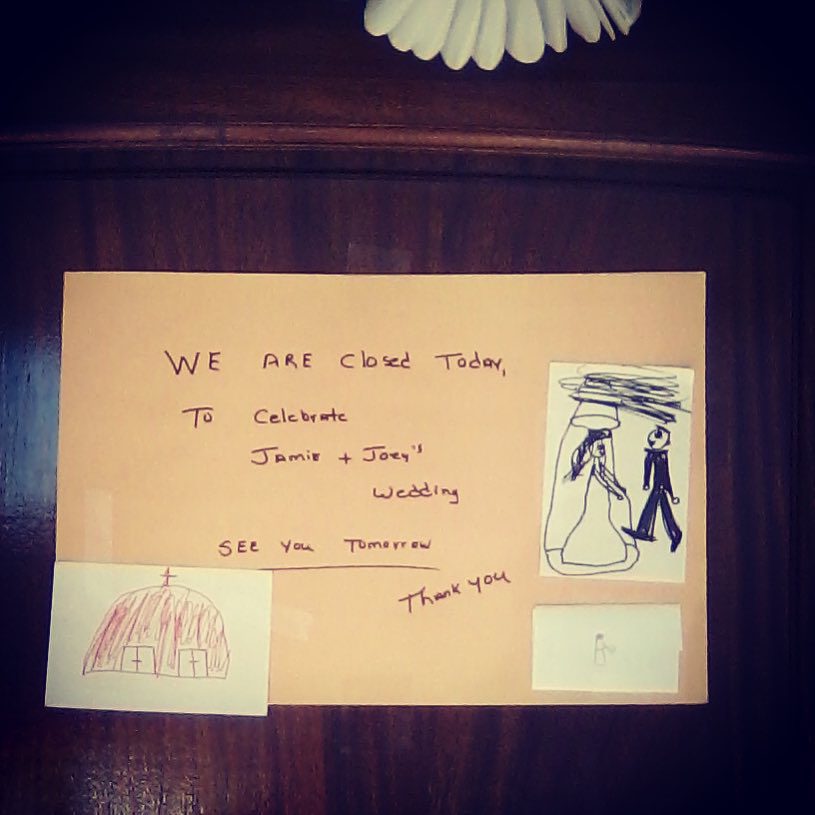 WE ARE Closed Today,
To Celebrate
Jamie + Joey's
Wedding
SEE You Tomorrow
Thank you